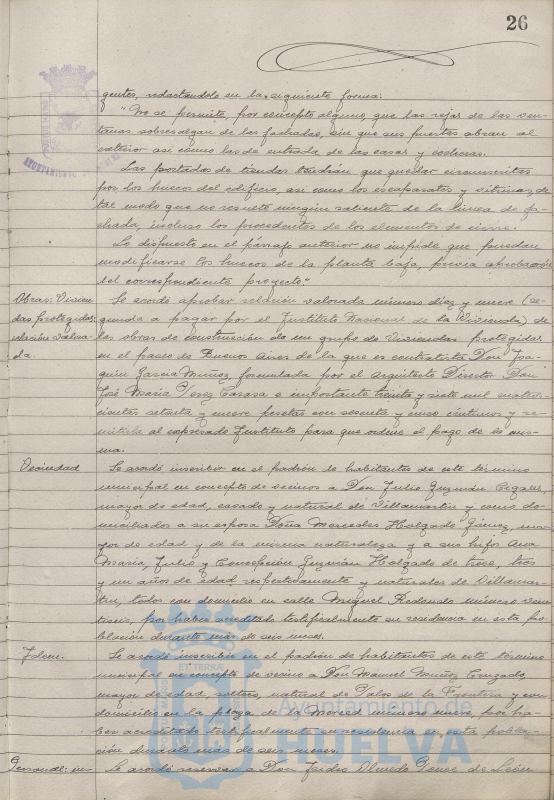 26
gentes, redactándolo en la siguiente forma:
"No se permite, por concepto alguno, que las rejas de las ven-
tanas sobresalgan de las fachadas, sin que sus puertas abran al
exterior así como las de entrada de las casas y cocheras.
Las portadas de tiendas tendrán que quedar circunscritas
por los huecos del edificio, así como los escaparates y vitrinas, de
tal modo que no resulte ningún saliente de la línea de fa-
chada, incluso los procedentes de los elementos de cierre.
Lo dispuesto en el párrafo anterior no impide que puedan
modificarse los huecos de la planta baja, previa aprobación
del correspondiente proyecto."
Obras: Vivien-
das protegidas:
relación valora-
da.
Se acordó aprobar relación valorada número diez y nueve (se-
gunda a pagar por el Instituto Nacional de la Vivienda) de
las obras de construcción de un grupo de Viviendas protegidas
en el paseo de Buenos Aires de la que es contratista Don Joa-
quín García Muñoz formulada por el Arquitecto Director Don
José María Perez Carasa e importante treinta y siete mil cuatro-
cientas setenta y nueve pesetas con sesenta y cinco céntimos y re-
mitirla al expresado Instituto para que ordene el pago de la mis-
ma.
Vecindad
Se acordó inscribir en el padrón de habitantes de este término
municipal en concepto de vecinos a Don Julio Guzmán
mayor de edad, casado y natural de Villamartín y como do-
miciliados a su esposa Doña Mercedes Holgado Gómez, ma-
yor de edad y de la misma naturaleza y a sus hijos Ana
María, Julio y Concepción Guzmán Holgado de trece, tres
y un años de edad respectivamente y naturales de Villamar-
tín, todos con domicilio en calle Miguel Redondo número vein-
tiseis, por haber acreditado testificalmente su residencia en esta po-
blación durante más de seis meses.
Idem.
Se acordó inscribir en el padrón de habitantes de este término
municipal en concepto de vecino a Don Manuel Muñoz Cruzado,
mayor de edad, soltero, natural de Palos de la Frontera y con
domicilio en la plaza de la Merced número nueve, por ha-
ber acreditado testificalmente su residencia en esta pobla-
ción durante más de seis meses.
Personal: in-
Se acordó reservar a Don Isidro Olmedo Perez de León
Ayuntamiento de
HUELVA